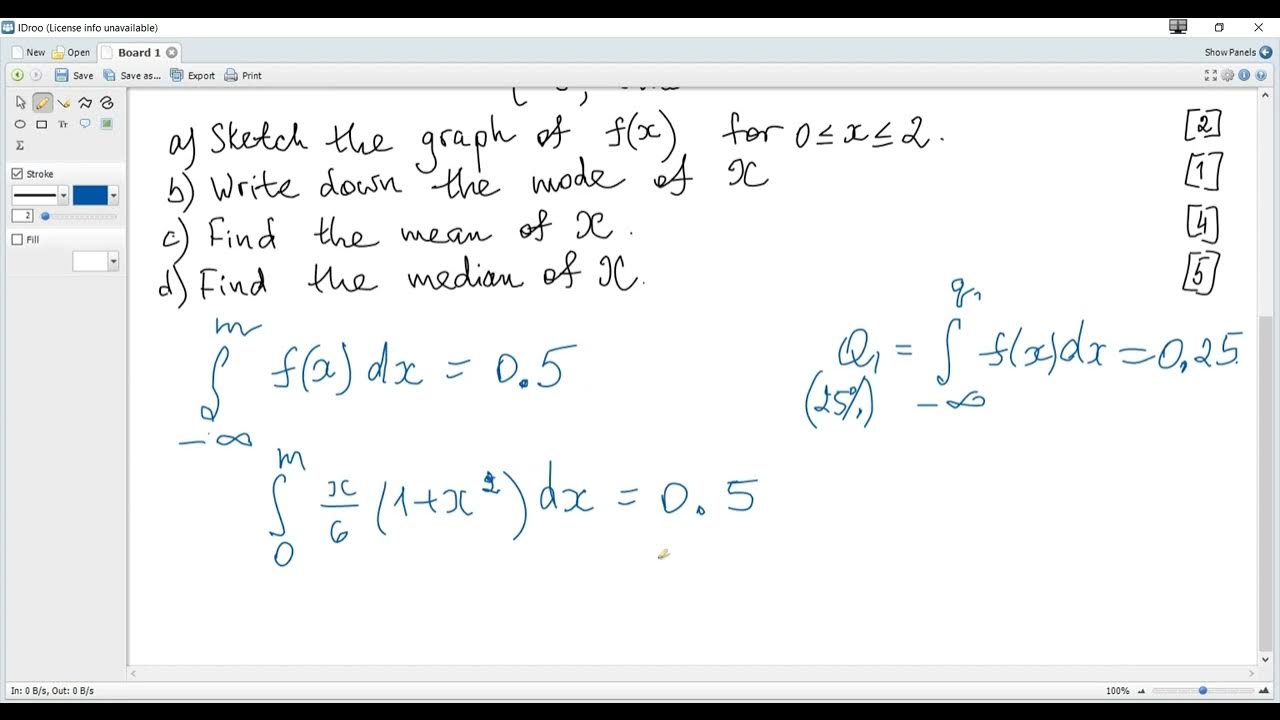 IDroo (License info unavailable)
New Open Board 1 Show Panels
Save Save as... Export Print
a) Sketch the graph of f(x) for 0 ≤ x ≤ 2. [2]
b) Write down the mode of X [1]
c) Find the mean of X. [4]
d) Find the median of X. [5]
Tr
Σ
Stroke
2
Fill
∫_{-∞}^{m} f(x) dx = 0.5
Q₁ = ∫_{-∞}^{q₁} f(x)dx = 0,25
(25%)
∫_{0}^{m} x/6 (1+x²) dx = 0.5
In: 0 B/s, Out: 0 B/s 100%